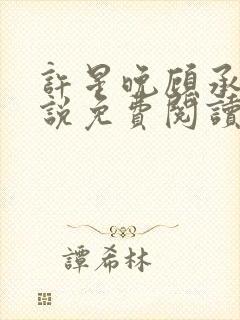 許星晚顧承
說免費閱讀
譚希林